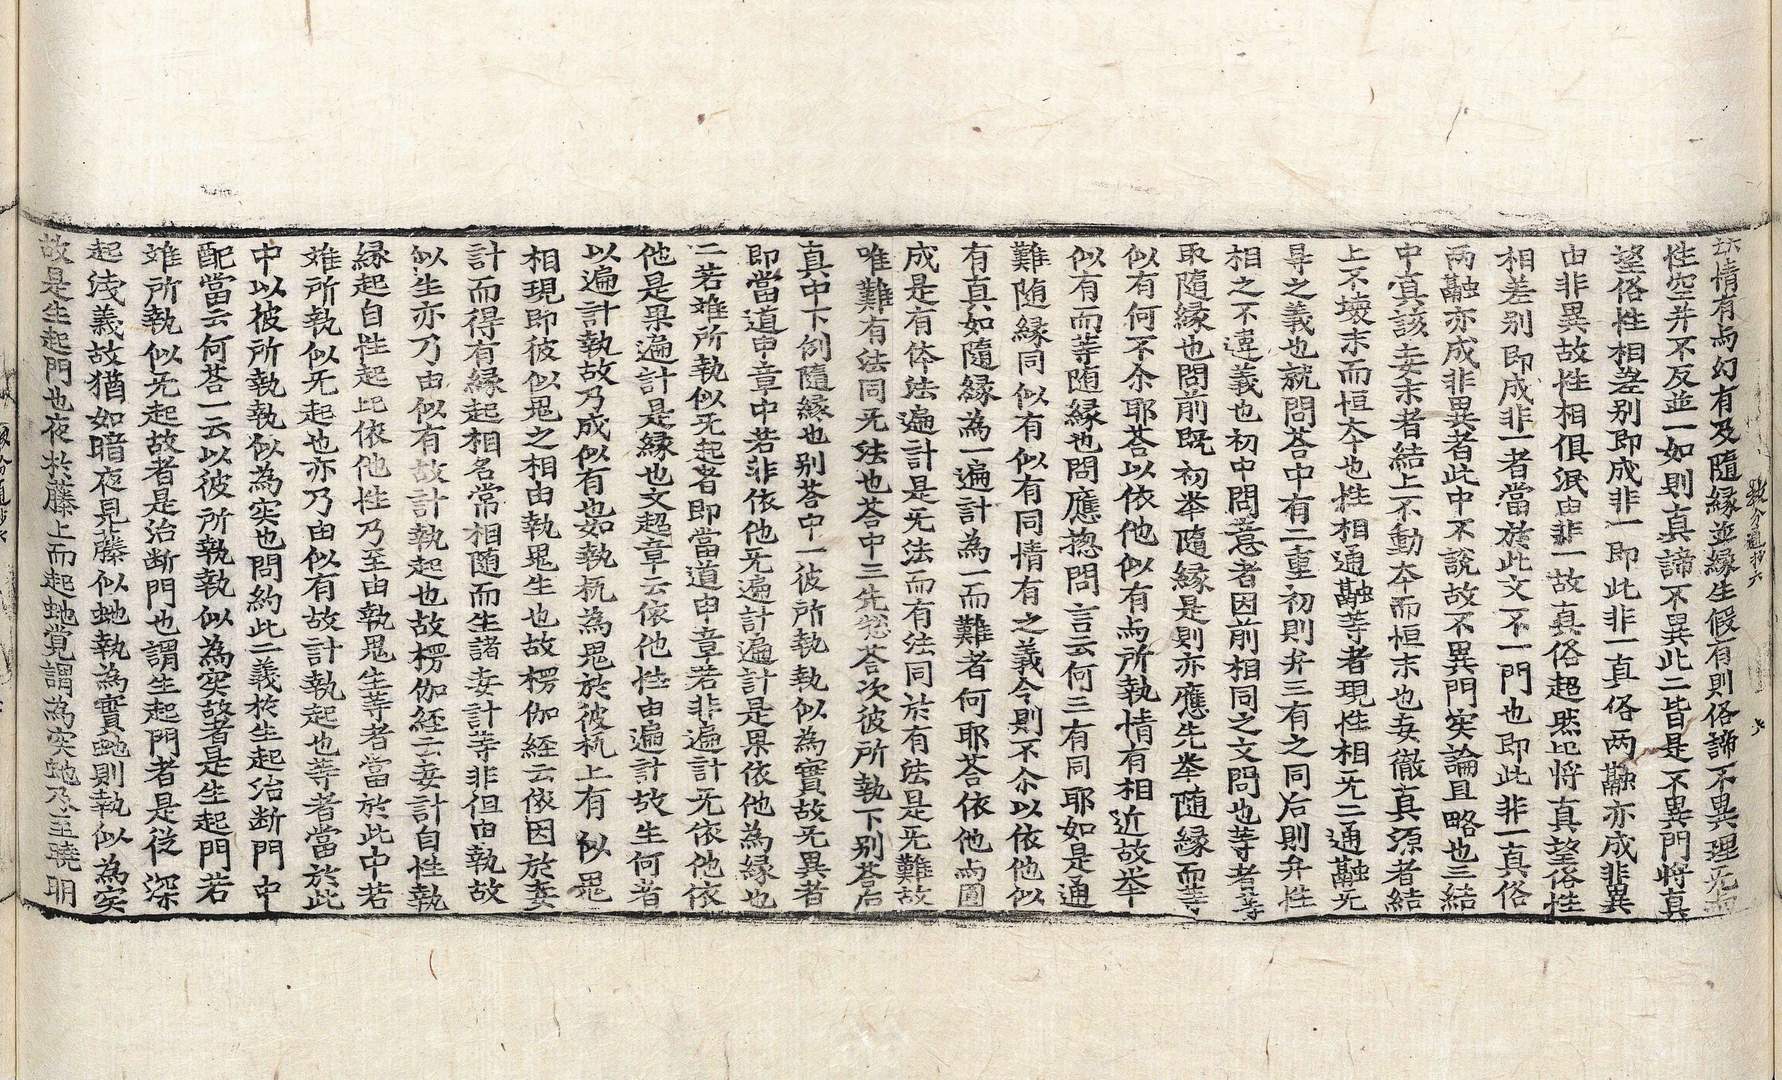 情有与幻有及隨縁並縁生假有則俗諦不異理无
性空并不反並一如則真諦不異此二皆是不異門將真
望俗性相差别即成非一即此非一真俗两融亦成非異
由非異故性相俱泯由非一故真俗超然比将真望俗性
相差别即成非一者當於此文不一門也即此非一真俗
两融亦成非異者此中不說故不異門实論且略也三結
中真該妄末者結上不動夲而恒末也妄徹真源者結
上不壊末而恒夲也性相通融等者現性相无二通融无
㝵之義也就問荅中有二重初則弁三有之同后則弁性
相之不違義也初中問意者因前相同之文問也等者等
取隨縁也問前既初举隨縁是則亦應先举随縁而等
似有何不尒耶荅以依他似有与所執情有相近故举
似有而等随縁也問應揔問言云何三有同耶如是通
難随縁同似有似有同情有之義今則不尒以依他似
有有真如隨縁為一遍計為一而難者何耶荅依他与圓
成是有体法遍計是无法而有法同於有法是无難故
唯難有法同无法也荅中三先㹅荅次彼所執下别荅后
真中下例隨縁也别荅中一彼所執執似為實故无異者
即當道申章中若非依他无遍計遍計是果依他為縁也
二若䧴所執似无起者即當道申章若非遍計无依他依
他是果遍計是縁也文超章云依他性由遍計故生何者
以遍計執故乃成似有也如執杌為鬼於彼杌上有似鬼
相現即彼似鬼之相由執鬼生也故楞伽經云依因於妄
計而得有縁起相名常相随而生諸妄計等非但由執故
似生亦乃由似有故計執起也故楞伽經云妄計自性執
縁起自性起比依他性乃至由執鬼生等者當於此中若
䧴所執似无起也亦乃由似有故計執起也等者當於此
中以彼所執執似為实也問約此二義於生起治断門中
配當云何荅一云以彼所執執似為实故者是生起門若
䧴所執似无起故者是治断門也謂生起門者是從深
起浅義故猶如暗夜見藤似虵執為實虵則執似為实
故是生起門也夜於藤上而起虵覚謂為实虵乃至曉明